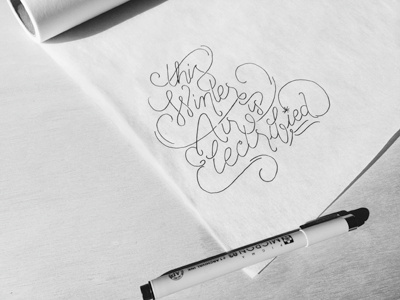 this
Winter
Air is
Electrified
MICRON